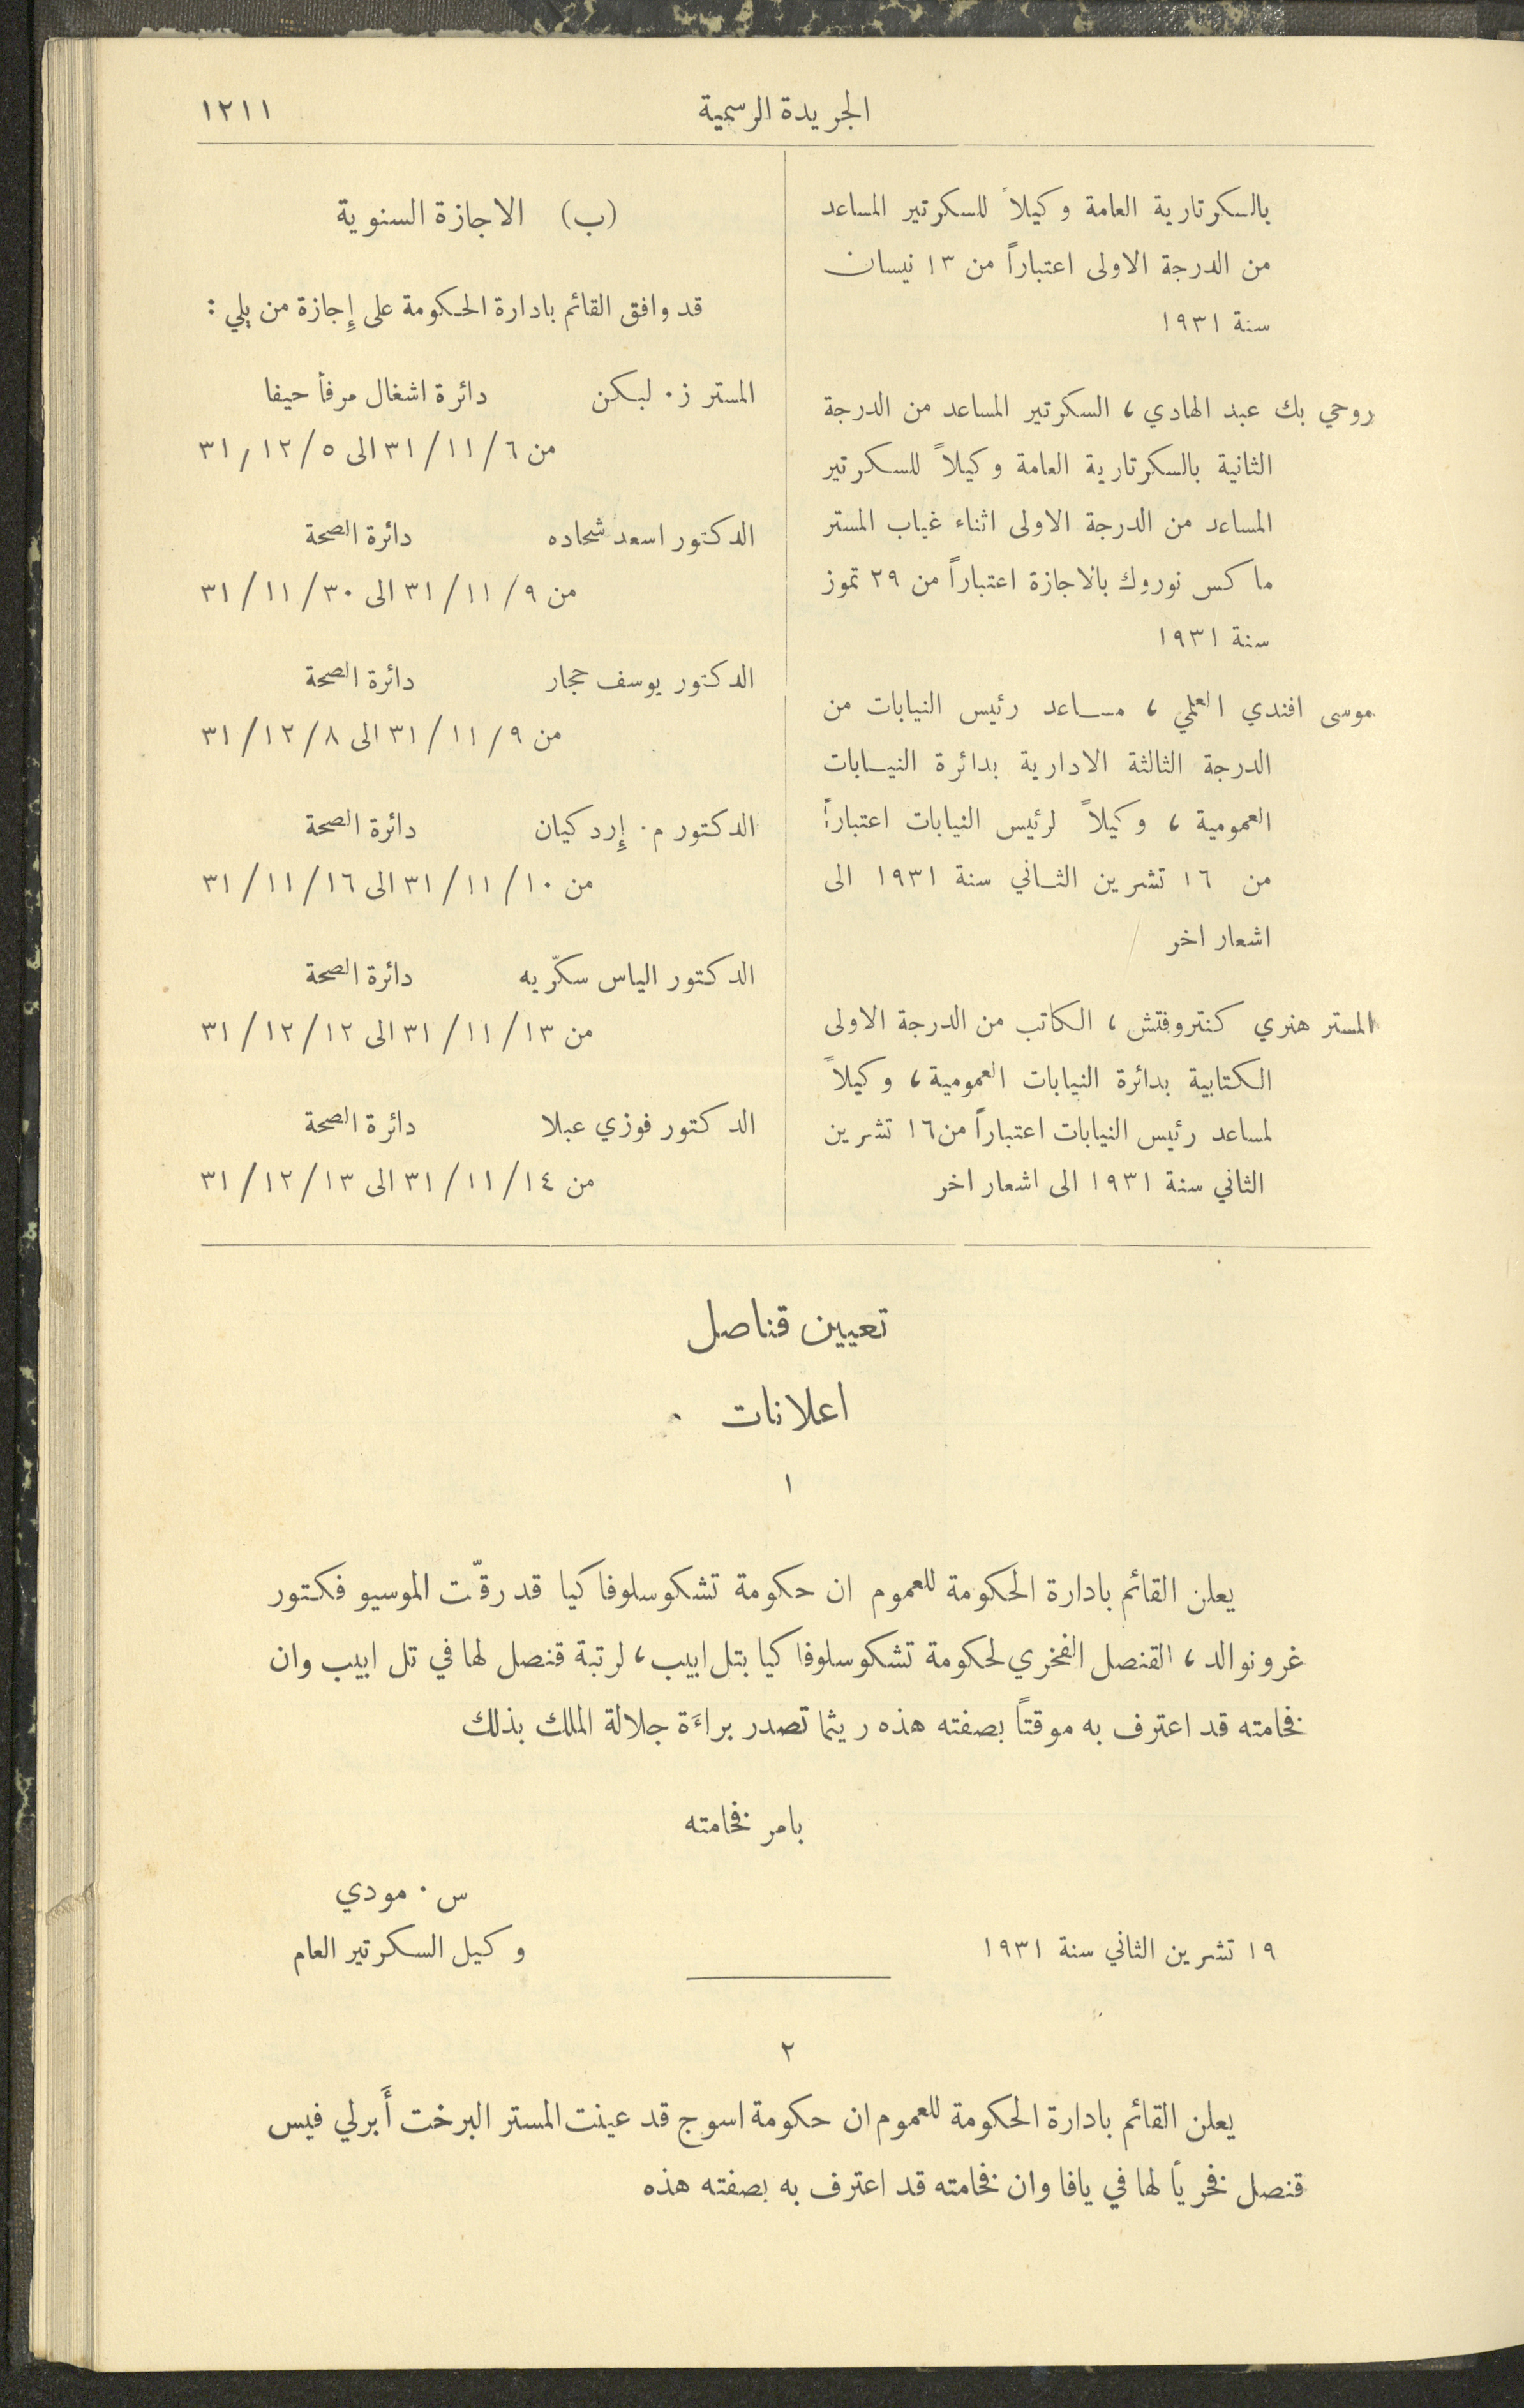 الجريدة الرسمية
١٢١١
بالسكرتارية العامة وكيلاً للسكرتير المساعد
من الدرجة الاولى اعتباراً من ١٣ نيسان
سنة ١٩٣١
روحي بك عبد الهادي، السكرتير المساعد من الدرجة
الثانية بالسكرتارية العامة وكيلاً للسكرتير
المساعد من الدرجة الاولى اثناء غياب المستر
ماكس نوروك بالاجازة اعتباراً من ٢٩ تموز
سنة ١٩٣١
موسى افندي العلمي، مساعد رئيس النيابات من
الدرجة الثالثة الادارية بدائرة النيابات
العمومية، وكيلاً لرئيس النيابات اعتباراً
من ١٦ تشرين الثاني سنة ١٩٣١ الى
اشعار اخر
المستر هنري كنتروفتش، الكاتب من الدرجة الاولى
الكتابية بدائرة النيابات العمومية، وكيلاً
لمساعد رئيس النيابات اعتباراً من ١٦ تشرين
الثاني سنة ١٩٣١ الى اشعار اخر
(ب) الاجازة السنوية
قد وافق القائم بادارة الحكومة على إجازة من يلي:
المستر ز. لبكن دائرة اشغال مرفأ حيفا
من ٦/١١/٣١ الى ٥/١٢/٣١
الدكتور اسعد شحاده دائرة الصحة
من ٩/١١/٣١ الى ٣٠/١١/٣١
الدكتور يوسف حجار دائرة الصحة
من ٩/١١/٣١ الى ٨/١٢/٣١
الدكتور م. إردكيان دائرة الصحة
من ١٠/١١/٣١ الى ١٦/١١/٣١
الدكتور الياس سكّريه دائرة الصحة
من ١٣/١١/٣١ الى ١٢/١٢/٣١
الدكتور فوزي عبلا دائرة الصحة
من ١٤/١١/٣١ الى ١٣/١٢/٣١
تعيين قناصل
اعلانات
١
يعلن القائم بادارة الحكومة للعموم ان حكومة تشكوسلوفاكيا قد رقّت الموسيو فكتور
غرونوالد، القنصل الفخري لحكومة تشكوسلوفاكيا بتل ابيب، لرتبة قنصل لها في تل ابيب وان
فخامته قد اعترف به موقتاً بصفته هذه ريثما تصدر براءَة جلالة الملك بذلك
بامر فخامته
س. مودي
١٩ تشرين الثاني سنة ١٩٣١ وكيل السكرتير العام
٢
يعلن القائم بادارة الحكومة للعموم ان حكومة اسوج قد عينت المستر البرخت أَبرلي فيس
قنصل فخرياً لها في يافا وان فخامته قد اعترف به بصفته هذه